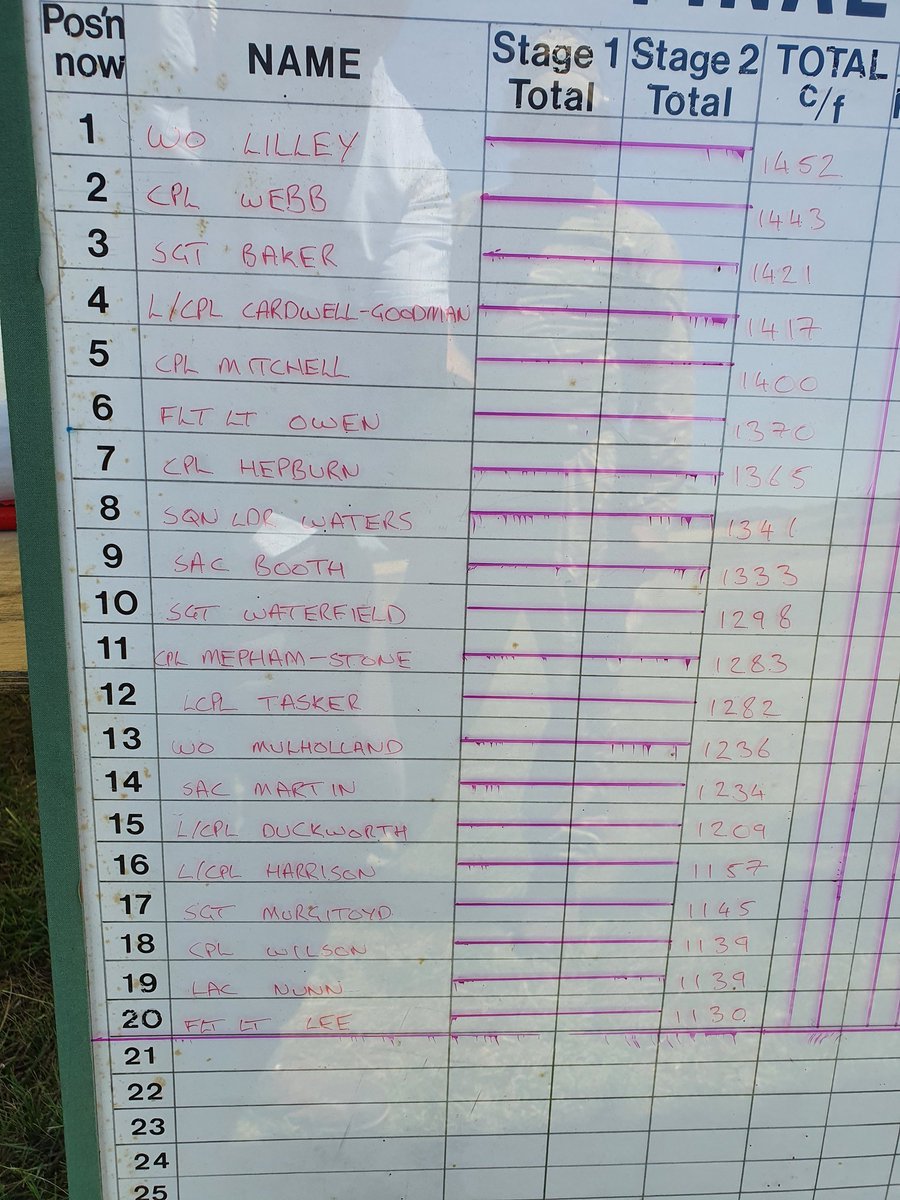 FINAL
Pos'n now NAME Stage 1 Total Stage 2 Total TOTAL c/f
1 WO LILLEY 1452
2 CPL WEBB 1443
3 SGT BAKER 1421
4 L/CPL CARDWELL-GOODMAN 1417
5 CPL MITCHELL 1400
6 FLT LT OWEN 1370
7 CPL HEPBURN 1365
8 SQN LDR WATERS 1341
9 SAC BOOTH 1333
10 SGT WATERFIELD 1298
11 CPL MEPHAM-STONE 1283
12 LCPL TASKER 1282
13 WO MULHOLLAND 1236
14 SAC MARTIN 1234
15 L/CPL DUCKWORTH 1209
16 L/CPL HARRISON 1157
17 SGT MURGITOYD 1145
18 CPL WILSON 1139
19 LAC NUNN 1139
20 FLT LT LEE 1130
21
22
23
24
25